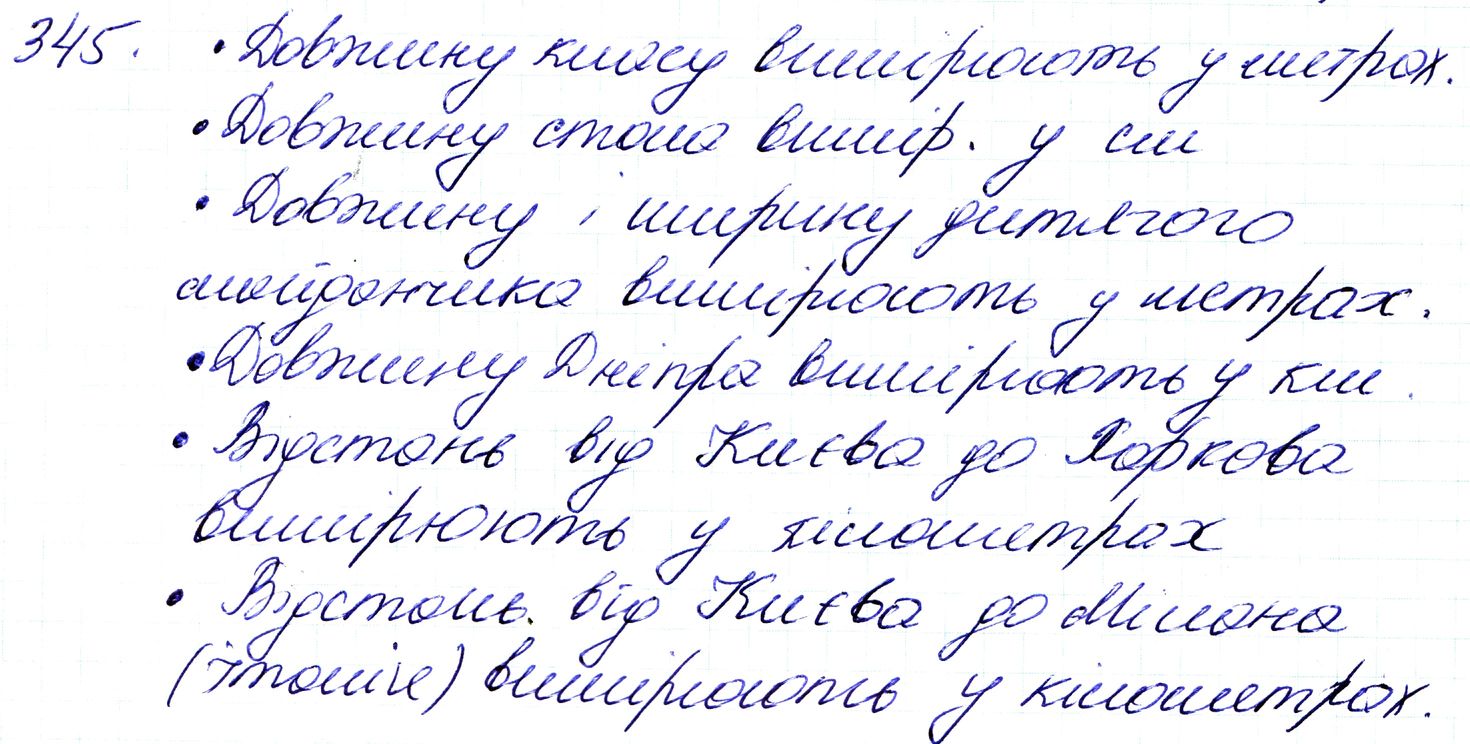 345. • Довжину класу вимірюють у метрах.
• Довжину стола вимір. у см
• Довжину і ширину дитячого
майданчика вимірюють у метрах.
• Довжину Дніпра вимірюють у км.
• Відстань від Києва до Харкова
вимірюють у кілометрах
• Відстань від Києва до Мілана
(Італія) вимірюють у кілометрах.